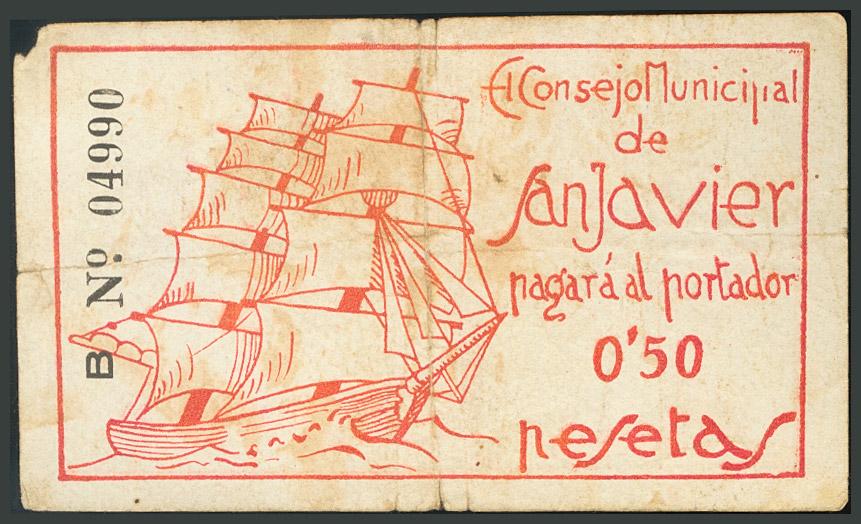 B Nº 04990
El Consejo Municipal
de
San Javier
pagará al portador
0'50
pesetas